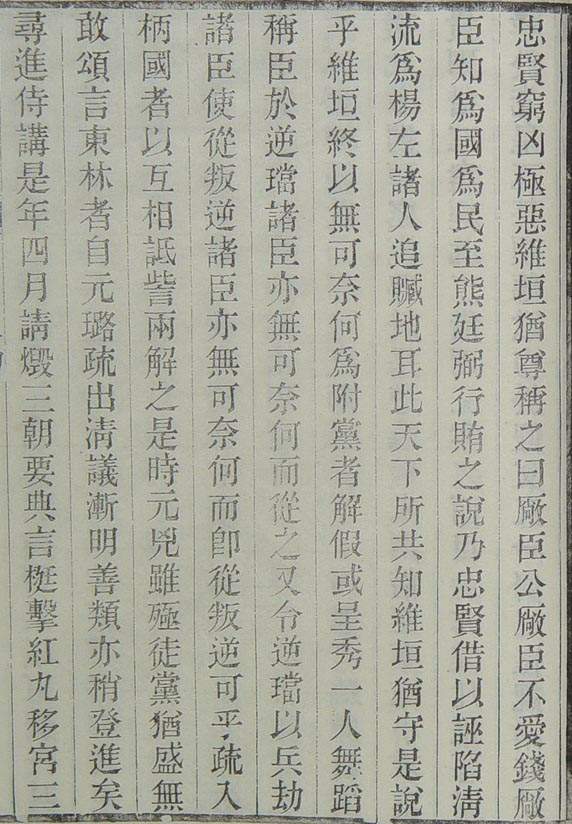 忠賢窮凶極惡維垣猶尊稱之曰厰臣公厰臣不愛錢厰
臣知爲國爲民至熊廷弼行賄之說乃忠賢借以誣陷淸
流爲楊左諸人追贓地耳此天下所共知維垣猶守是說
乎維垣終以無可奈何爲附黨者解假或呈秀一人舞蹈
稱臣於逆璫諸臣亦無可奈何而從之又令逆璫以兵劫
諸臣使從叛逆諸臣亦無可奈何而卽從叛逆可乎疏入
柄國者以互相詆訾兩解之是時元兇雖殛徒黨猶盛無
敢頌言東林者自元璐疏出淸議漸明善類亦稍登進矣
尋進侍講是年四月請燬三朝要典言梃擊紅丸移宮三